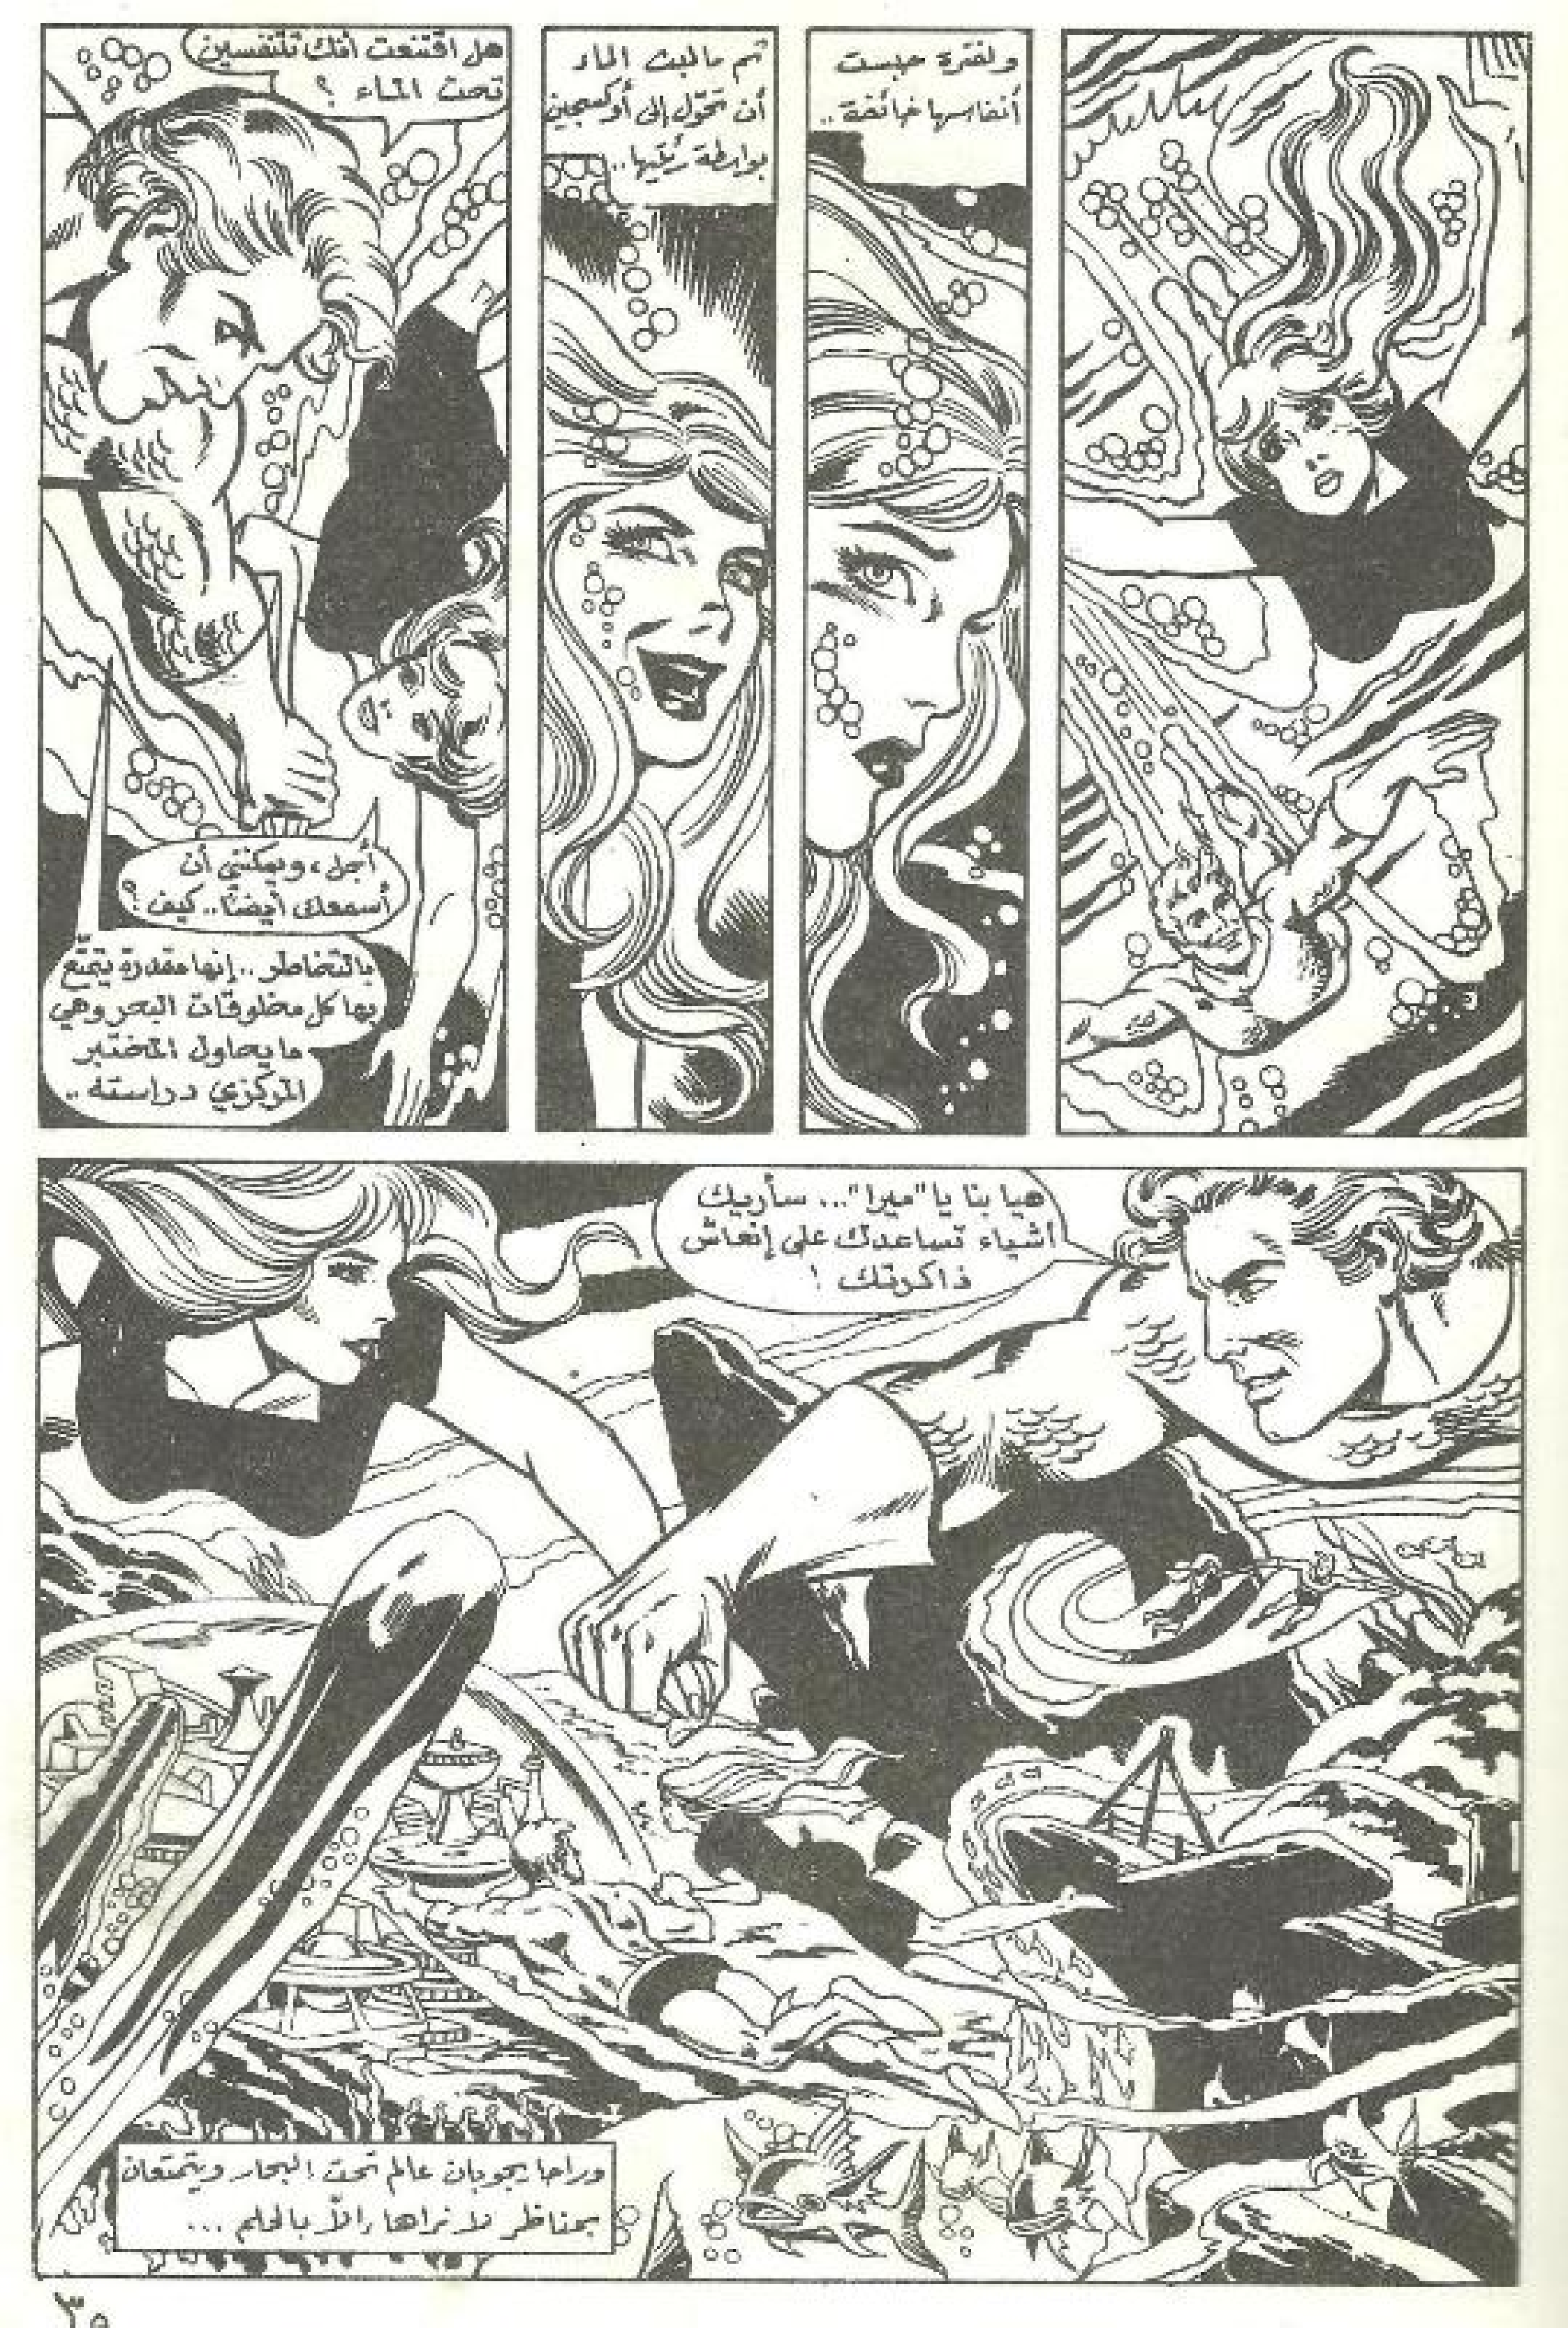 ولفترة حبست
أنفاسها خائفة..
ثم مالبث الماء
أن تحوّل إلى أوكسجين
بواسطة رئتيها..
هل اقتنعت أنك تتنفسين
تحت الماء ؟
أجل، ويمكنني أن
أسمعك أيضًا.. كيف ؟
بالتخاطر.. إنها مقدرة يتمتّع
بها كل مخلوقات البحر وهي
ما يحاول المختبر
المركزي دراسته ..
هيا بنا يا "ميرا"... سأريك
أشياء تساعدك على إنعاش
ذاكرتك !
وراحا يجوبان عالم تحت البحار ويتمتعان
بمناظر لا نراها إلاّ بالحلم ...
٣٥